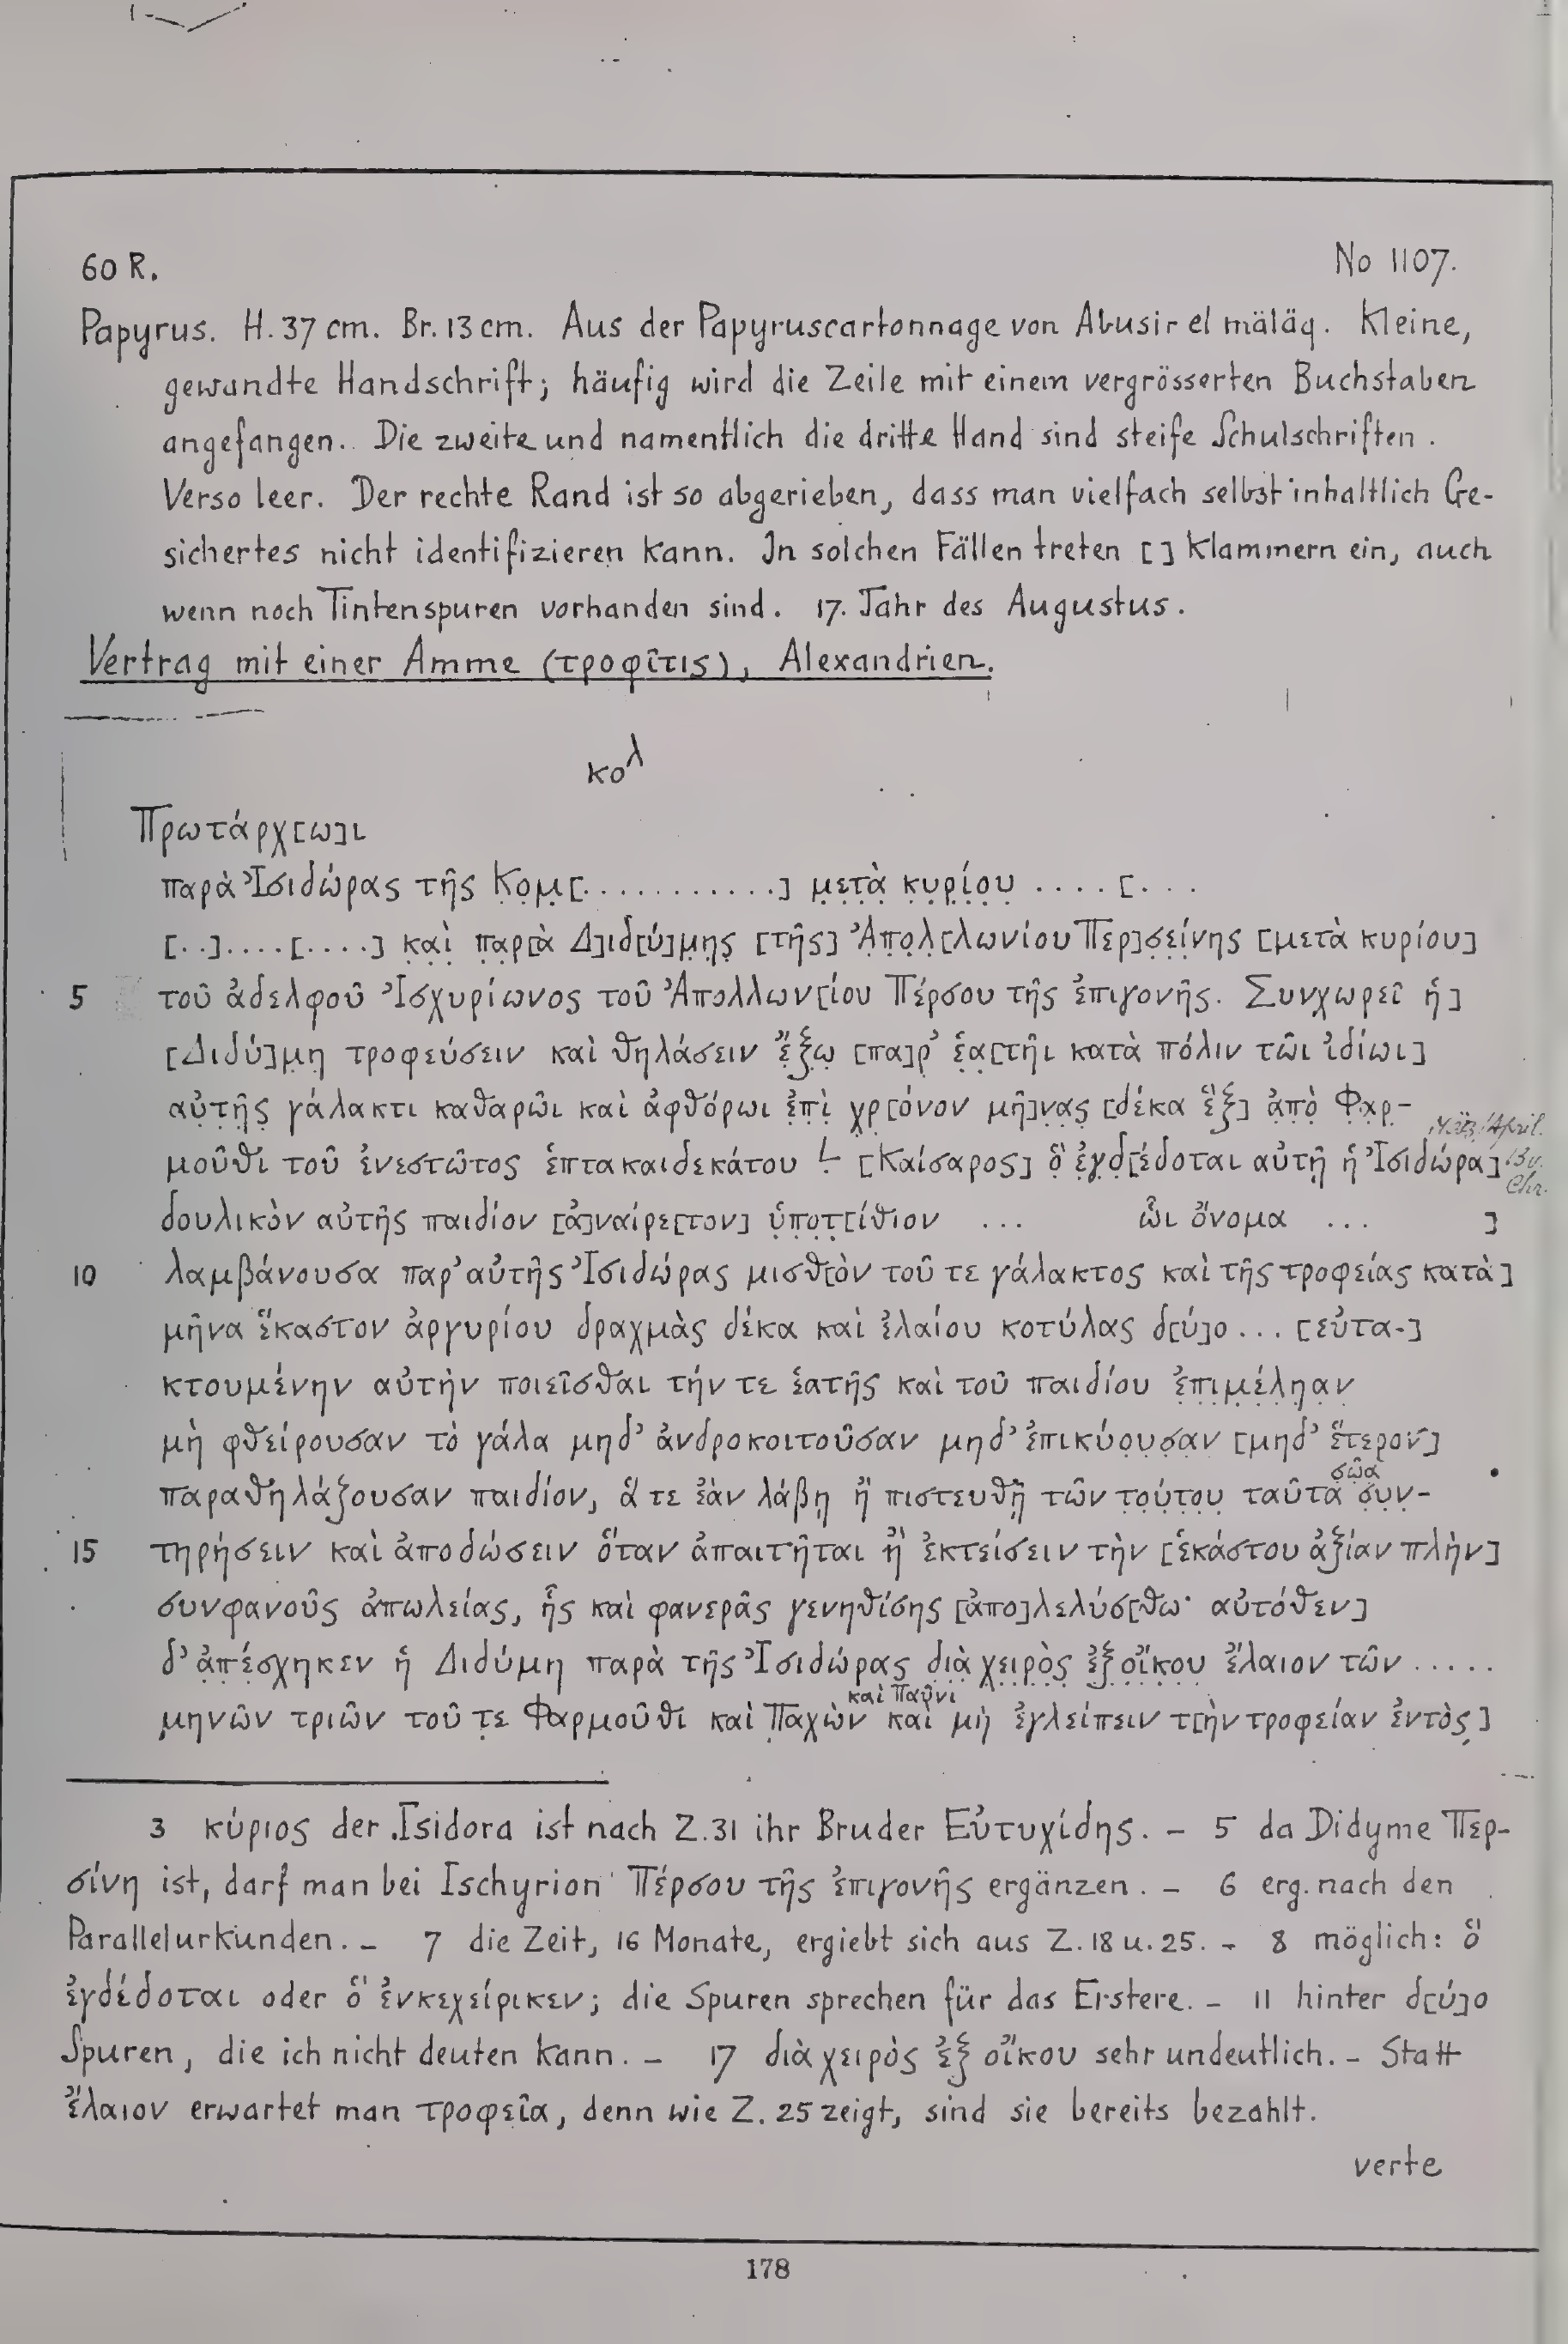 60 R.
No 1107.
Papyrus. H. 37 cm. Br. 13 cm. Aus der Papyruscartonnage von Abusir el mäläq. Kleine,
gewandte Handschrift; häufig wird die Zeile mit einem vergrösserten Buchstaben
angefangen. Die zweite und namentlich die dritte Hand sind steife Schulschriften.
Verso leer. Der rechte Rand ist so abgerieben, dass man vielfach selbst inhaltlich Ge-
sichertes nicht identifizieren kann. In solchen Fällen treten [ ] Klammern ein, auch
wenn noch Tintenspuren vorhanden sind. 17. Jahr des Augustus.
Vertrag mit einer Amme (τροφῖτις), Alexandrien.
κολ
Πρωτάρχ[ω]ι
παρὰ Ἰσιδώρας τῆς Κο̣μ̣[...........] μ̣ε̣τ̣ὰ̣ κ̣υ̣ρ̣ί̣ο̣υ̣ ....[...
[..]....[....] κ̣α̣ὶ̣ π̣α̣ρ̣[ὰ Δ]ι̣δ̣[ύ]μ̣η̣ς̣ [τῆς] Ἀ̣π̣ο̣λ̣[λωνίου Περ]σ̣ε̣ί̣ν̣η̣ς̣ [μετὰ κυρίου]
5 τοῦ ἀδελφοῦ Ἰσχυρίωνος τοῦ Ἀπολλων[ίου Πέρσου τῆς ἐπιγονῆς. Συνχωρεῖ ἡ]
[Διδύ]μ̣η̣ τροφεύσειν καὶ θηλάσειν ἔ̣ξ̣ω̣ [πα]ρ̣’ ἑ̣α̣[τῆι κατὰ πόλιν τῶι ἰδίωι]
α̣ὐ̣τ̣ῆ̣ς̣ γάλακτι καθαρῶι καὶ ἀφθόρωι ἐ̣π̣ὶ̣ χ̣ρ̣[όνον μῆ]ν̣α̣ς̣ [δέκα ἓξ] ἀ̣π̣ὸ̣ Φ̣α̣ρ̣-
März/April.
μοῦθι τοῦ ἐνεστῶτος ἑπτακαιδεκάτου L [Καίσαρος] ὃ̣ ἐ̣γ̣δ̣[έδοται αὐτῇ ἡ Ἰσιδώρα]
13 v.
Chr.
δουλικὸν αὐτῆς παιδίον [ἀ]ναίρε[τον] ὑ̣π̣ο̣τ̣[ίθιον ... ὧι ὄνομα ... ]
10 λαμβάνουσα παρ’ αὐτῆς Ἰσιδώρας μισθ[ὸν τοῦ τε γάλακτος καὶ τῆς τροφείας κατὰ]
μῆνα ἕκαστον ἀργυρίου δραχμὰς δέκα καὶ ἐλαίου κοτύλας δ[ύ]ο ... [εὐτα-]
κτουμένην αὐτὴν ποιεῖσθαι τήν τε ἑατῆς καὶ τοῦ παιδίου ἐ̣π̣ι̣μ̣έ̣λ̣η̣α̣ν̣
μὴ φθείρουσαν τὸ γάλα μηδ’ ἀνδροκοιτοῦσαν μηδ’ ἐπικύο̣υ̣σ̣α̣ν̣ [μηδ’ ἕτερον]
σῶα
παραθηλάζουσαν παιδίον, ἅ τε ἐὰν λάβῃ ἢ πιστευθῇ τῶν τ̣ο̣ύ̣τ̣ο̣υ̣ ταῦτα σ̣υ̣ν̣-
15 τηρήσειν καὶ ἀποδώσειν ὅταν ἀπαιτῆται ἢ̣ ἐκτείσειν τὴν [ἑκάστου ἀξίαν πλὴν]
συνφανοῦς ἀπωλείας, ἧς καὶ φανερᾶς γενηθίσης [ἀπο]λελύσ[θω· αὐτόθεν]
δ’ ἀπέσχηκεν ἡ Διδύμη παρὰ τῆς Ἰσιδώρας δ̣ι̣ὰ̣ χ̣ε̣ι̣ρ̣ὸ̣ς̣ ἐ̣ξ̣ ο̣ἴ̣κ̣ο̣υ̣ ἔλαιον τῶν .....
καὶ Παῦνι
μηνῶν τριῶν τοῦ τ̣ε Φαρμοῦθι καὶ Παχὼν καὶ μὴ ἐγλείπειν τ[ὴν τροφείαν ἐντὸς]
3 κύριος der Isidora ist nach Z.31 ihr Bruder Εὐτυχίδης. – 5 da Didyme Περ-
σίνη ist, darf man bei Ischyrion Πέρσου τῆς ἐπιγονῆς ergänzen. – 6 erg. nach den
Parallelurkunden. – 7 die Zeit, 16 Monate, ergiebt sich aus Z. 18 u. 25. – 8 möglich: ὃ
ἐγδέδοται oder ὃ ἐνκεχείρικεν; die Spuren sprechen für das Erstere. – 11 hinter δ[ύ]ο
Spuren, die ich nicht deuten kann. – 17 διὰ χειρὸς ἐξ οἴκου sehr undeutlich. – Statt
ἔλαιον erwartet man τροφεῖα, denn wie Z. 25 zeigt, sind sie bereits bezahlt.
verte
178